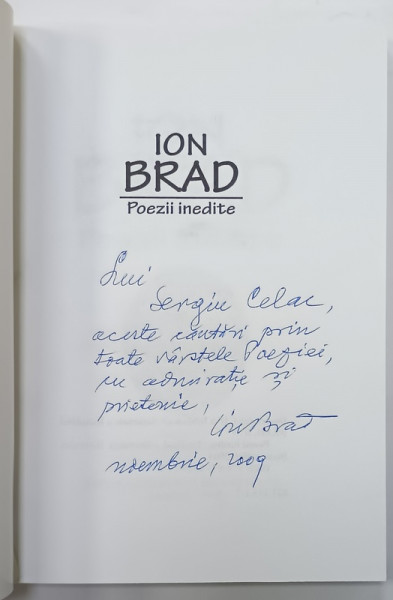 ION
BRAD
Poezii inedite
Lui
Sergiu Celac,
aceste căutări prin
toate vârstele Poeziei,
cu admirație și
prietenie,
Ion Brad
noembrie, 2009